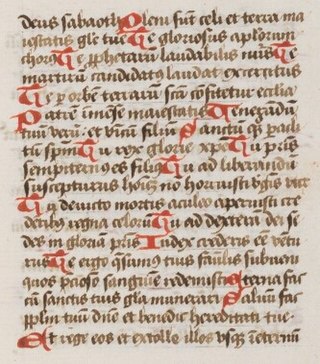 deus sabaoth Pleni sūt celi et terra ma
iestatis gle tue Te gloriosus aplorum
chorus Te ꝓphetarū laudabilis nūs Te
martirū candidatus laudat exercitus
Te ꝑ orbe terrarū scā cōfitetur ecclia
Patrē īmēse maiestatis Venerādū
tuū verū et vnicū filiū Sanctū qꝫ paclī
tū spm̄ Tu rex glorie xpe Tu pris
sempitern9 es filiꝰ Tu ad liberandū
suscepturus hoīeꝫ nō horruisti v̄gīs vterū
Tu deuicto mortis aculeo aperuisti cre
dētibꝫ regna celorū Tu ad dexterā dei se
des in gloriā pris Iudex crederis eē vētu
rus Te ergo qsumꝰ tuis faml̄is subueni
quos pcioso sanguīe redemisti Eterna fac
cū sanctis tuis gl̄ia munerari Saluū fac
pplm tuū dnē et benedic hereditati tue
Et rege eos et extolle illos vsqꝫ ī eternū